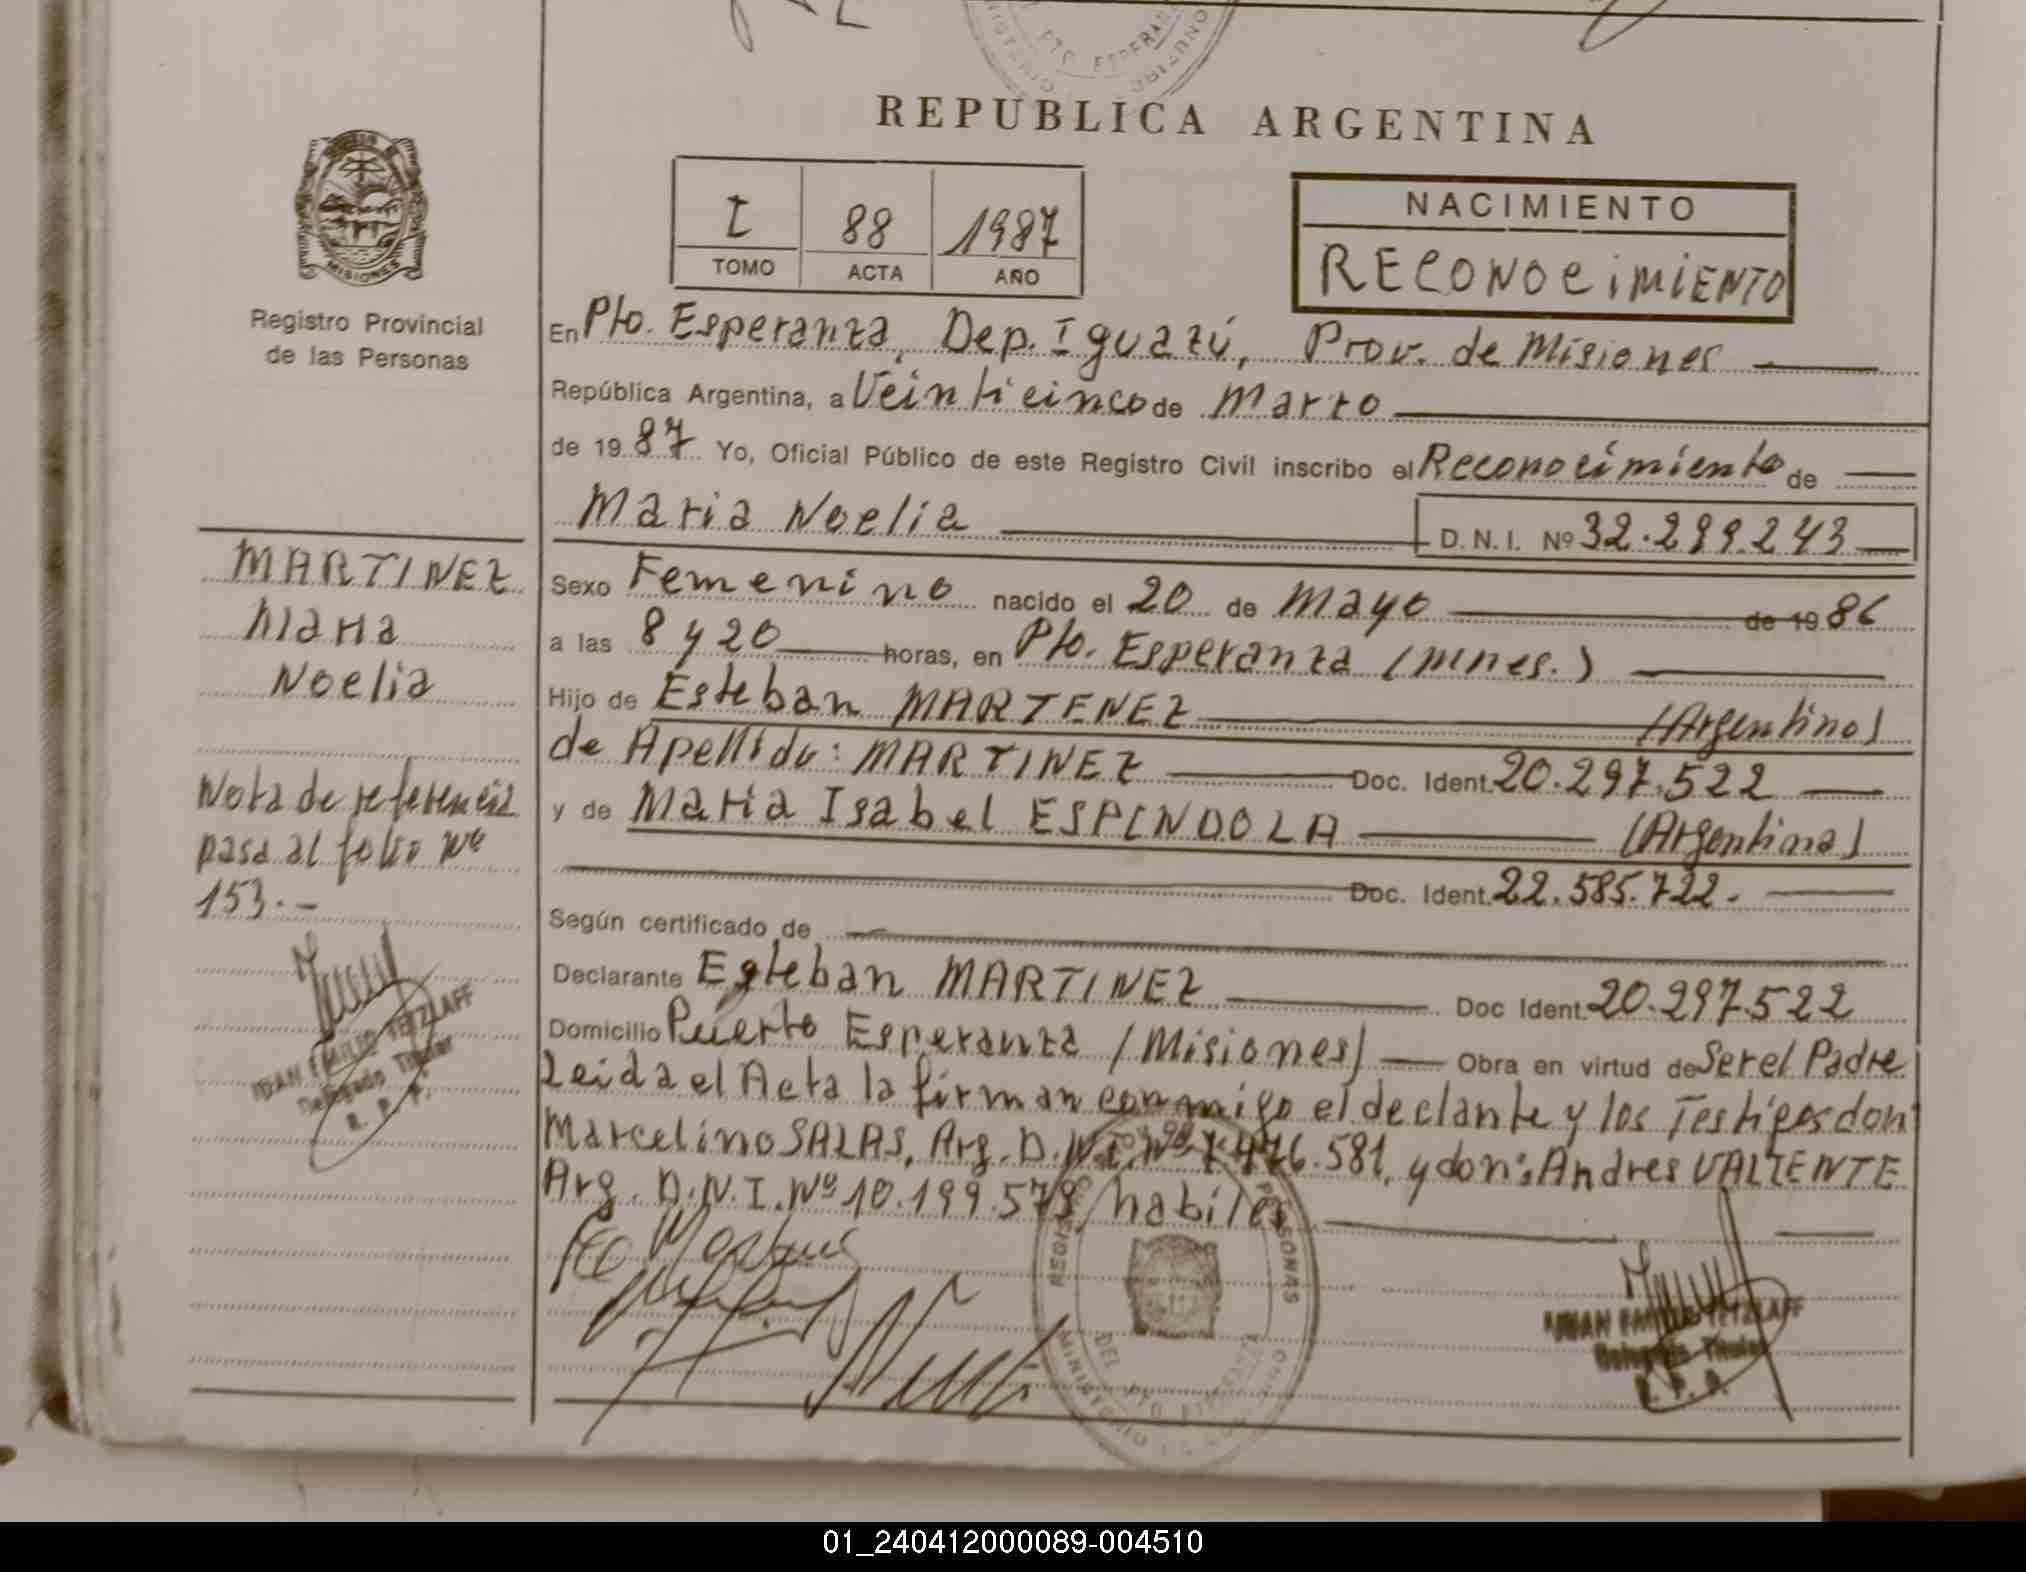 REPUBLICA ARGENTINA
I 88 1987
TOMO ACTA AÑO
NACIMIENTO
RECONOCIMIENTO
MISIONES
Registro Provincial
de las Personas
En Pto. Esperanza, Dep. Iguazú, Prov. de Misiones
República Argentina, a Veinticinco de Marzo
de 1987 Yo, Oficial Público de este Registro Civil inscribo el Reconocimiento de
Maria Noelia D.N.I. Nº 32.299.243
Sexo Femenino nacido el 20 de Mayo de 1986
a las 8 y 20 horas, en Pto. Esperanza (Mnes.)
Hijo de Esteban MARTENEZ (Argentino)
de Apellido: MARTINEZ Doc. Ident. 20.297.522
y de Maria Isabel ESPINDOLA (Argentina)
Doc. Ident. 22.585.722.
Según certificado de
Declarante Esteban MARTINEZ Doc Ident. 20.297.522
Domicilio Puerto Esperanza (Misiones) Obra en virtud de Ser el Padre
Leida el Acta la firman conmigo el declante y los Testigos don
Marcelino SALAS, Arg. D.N.I. Nº 7.476.581, y don: Andres VALIENTE
Arg. D.N.I. Nº 10.199.579, habiles
MARTINEZ
Maria
Noelia
Nota de referencia
pasa al folio Nº
153.-
JUAN EMILIO TETZLAFF
Delegado Titular
R. P. P.
JUAN EMILIO TETZLAFF
Delegado Titular
R. P. P.
01_240412000089-004510